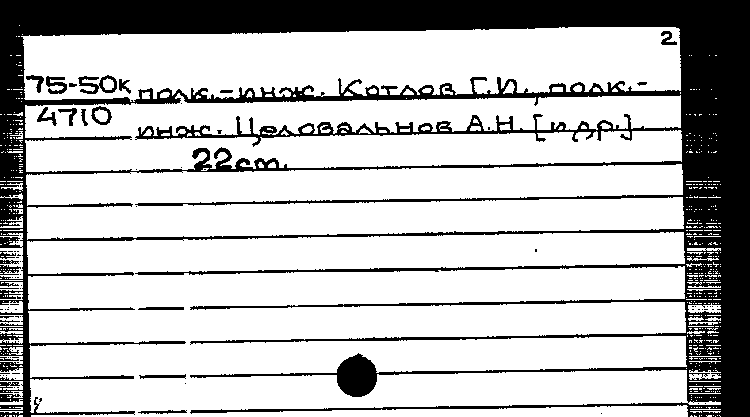 2
75-50к полк.-инж. Котлов Г.И., полк.-
4710 инж. Целовальнов А.Н. [и др.]
22cm.